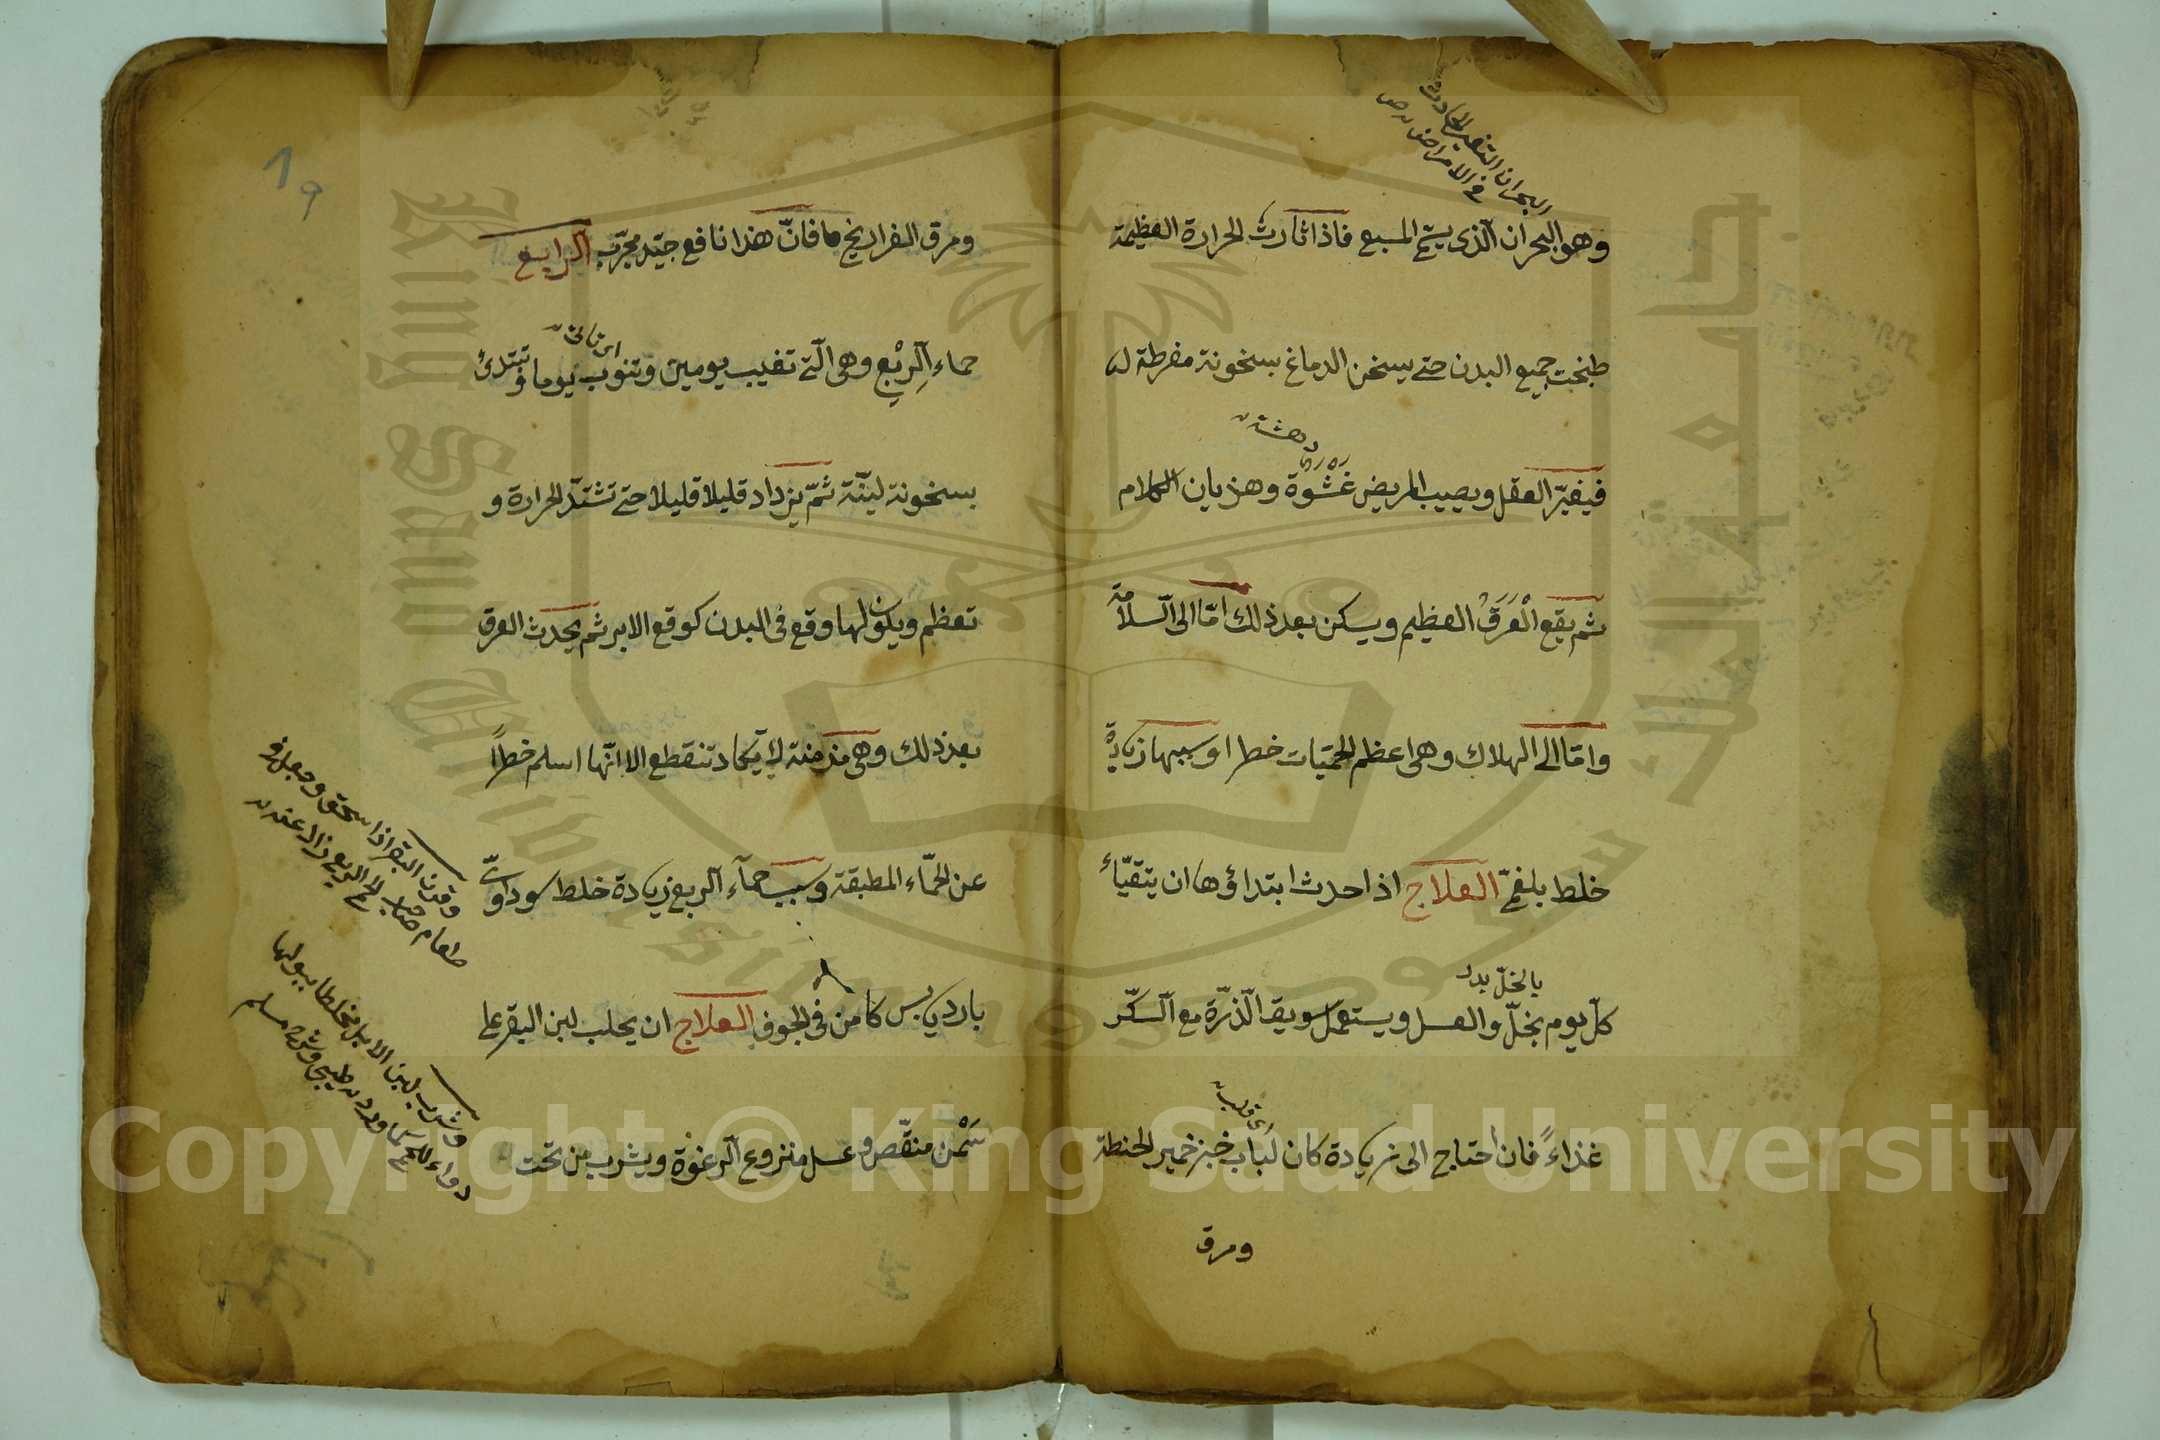 البحران التغير الحادث
في الامراض
وهو البحران الّذى يتم السبع فاذا ثارت الحرارة العظيمة
طبخت جميع البدن حتى يسخن الدماغ بسخونة مفرطة
دهشة
فيغيّر العقل ويصيب المريض غَشْوَة وهذيان الكلام
ثم يقع الْعَرَقُ العظيم ويسكن بعد ذلك امّا الى السّلامة
وامّا الى الهلاك وهى اعظم الحمّيات خطرا وسببها زيادة
خلط بلغمىّ العلاج اذا حدث ابتداؤها ان يتقيّأ
بالخلّ
كلّ يوم بخلّ والعسل ويستعمل سويق الذّرّة مع السّكّر
اى قلب
غذاءً فان احتاج الى زيادة كان لُبَاب خبز خمير الحنطة
ومرق
19
ومرق الفراريخ ما فانّ هذا نافع جيّد مجرّب الرابع
اى تاتى
حماء الرِبْع وهى الّتى تغيب يومين وتنوب يوما وتبتدئ
بسخونة ليّنة ثمّ يزداد قليلا قليلا حتى تشتدّ الحرارة و
تعظم ويكون لها وقع فى البدن كوقع الابر ثم يحدث العرق
بعد ذلك وهى مزمنة لا تكاد تنقطع الا انّها اسلم خطرًا
عن الحمّاء المطبقة وسبب حمآء الربع زيادة خلط سوداوىّ
بارد يابس كامن فى الجوف العلاج ان يحلب لبن البقر على
سَمْن منقّص وعسل منزوع الرغوة ويشرب من تحت
وقرن البقر اذا سحق وجعل فى
طعام صاحب حمى الربع زال عنه
وشرب لبن الابل مخلطا ببولها
دواء للحمى
Copyright © King Saud University
King Saud University
جامعة الملك سعود